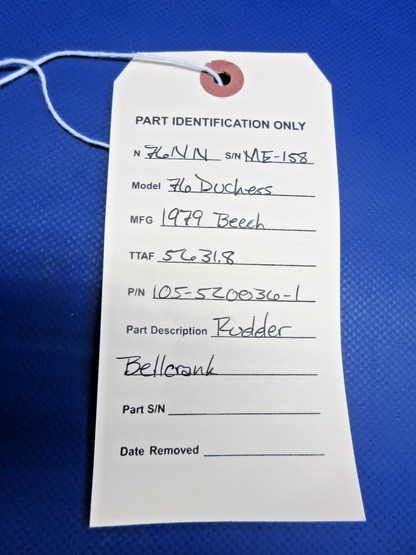 PART IDENTIFICATION ONLY
N 76NN S/N ME-158
Model 76 Duchess
MFG 1979 Beech
TTAF 5631.8
P/N 105-520036-1
Part Description Rudder
Bellcrank
Part S/N
Date Removed